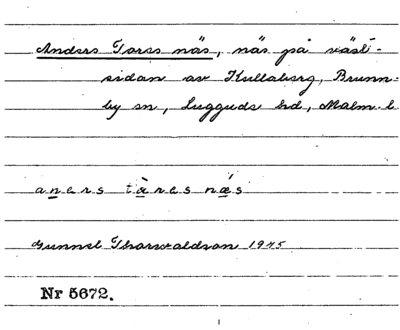 Anders Tores näs, näs på väst-
sidan av Kullaberg, Brunn-
by sn, Luggude hd, Malm. l.
aners tàres næ´s
Gunnel Thorwaldson 1945
Nr 5672.